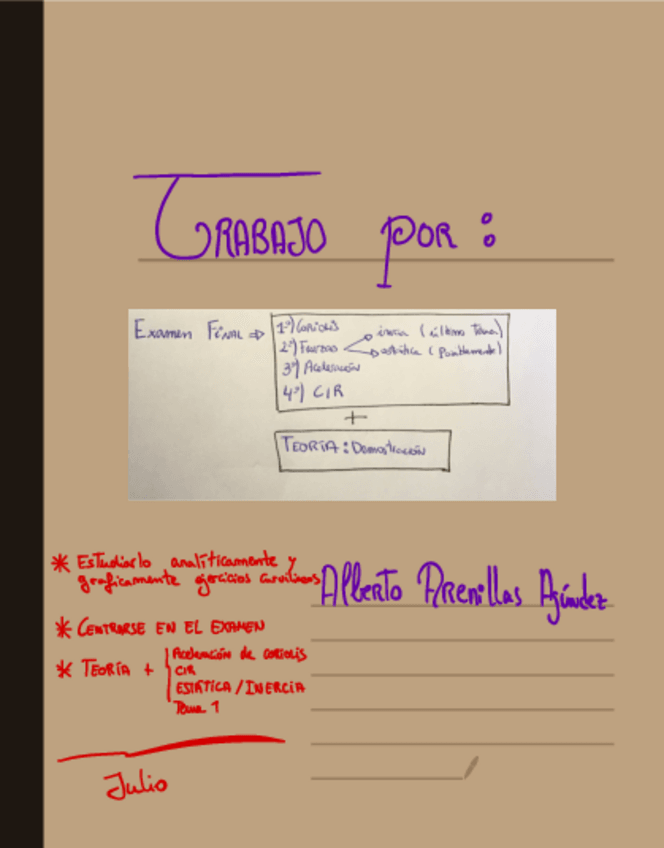 TRABAJO POR:
Examen FINAL ⇒
1º) Coriolis
2º) Fuerzas
inercia (último Tema)
estática (Posiblemente)
3º) Aceleración
4º) CIR
+
TEORÍA: Demostración
* Estudiarlo analíticamente y
graficamente ejercicios
* CENTRARSE EN EL EXAMEN
* TEORÍA +
Aceleración de CORIOLIS
CIR
ESTÁTICA / INERCIA
Tema 1
Julio
Alberto Arenillas Agúndez